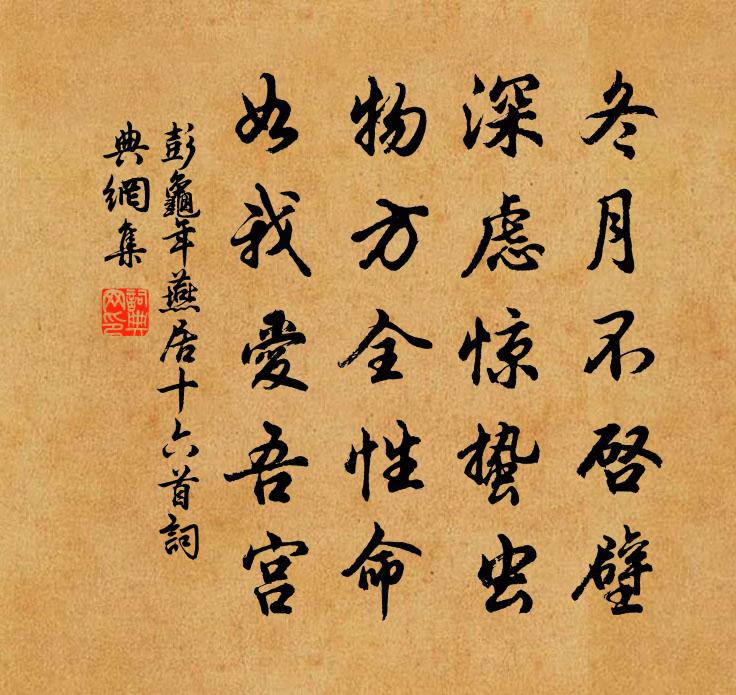 冬月不启壁
深虑惊蛰虫
物方全性命
如我爱吾宫
彭龜年燕居十六首詞
典網集
詞典網印